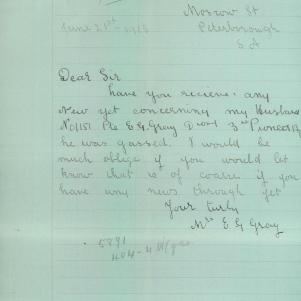 Moscow St
June 21st 1918
Peterborough
S A
Dear Sir
have you recieve any
New yet concerning my Husband
Pte E G Gray 3rd Pioneers
he was gassed. I would be
much oblige if you would let
know that is of coarse if you
have any news through yet
Your turly
Mrs E G Gray
5891